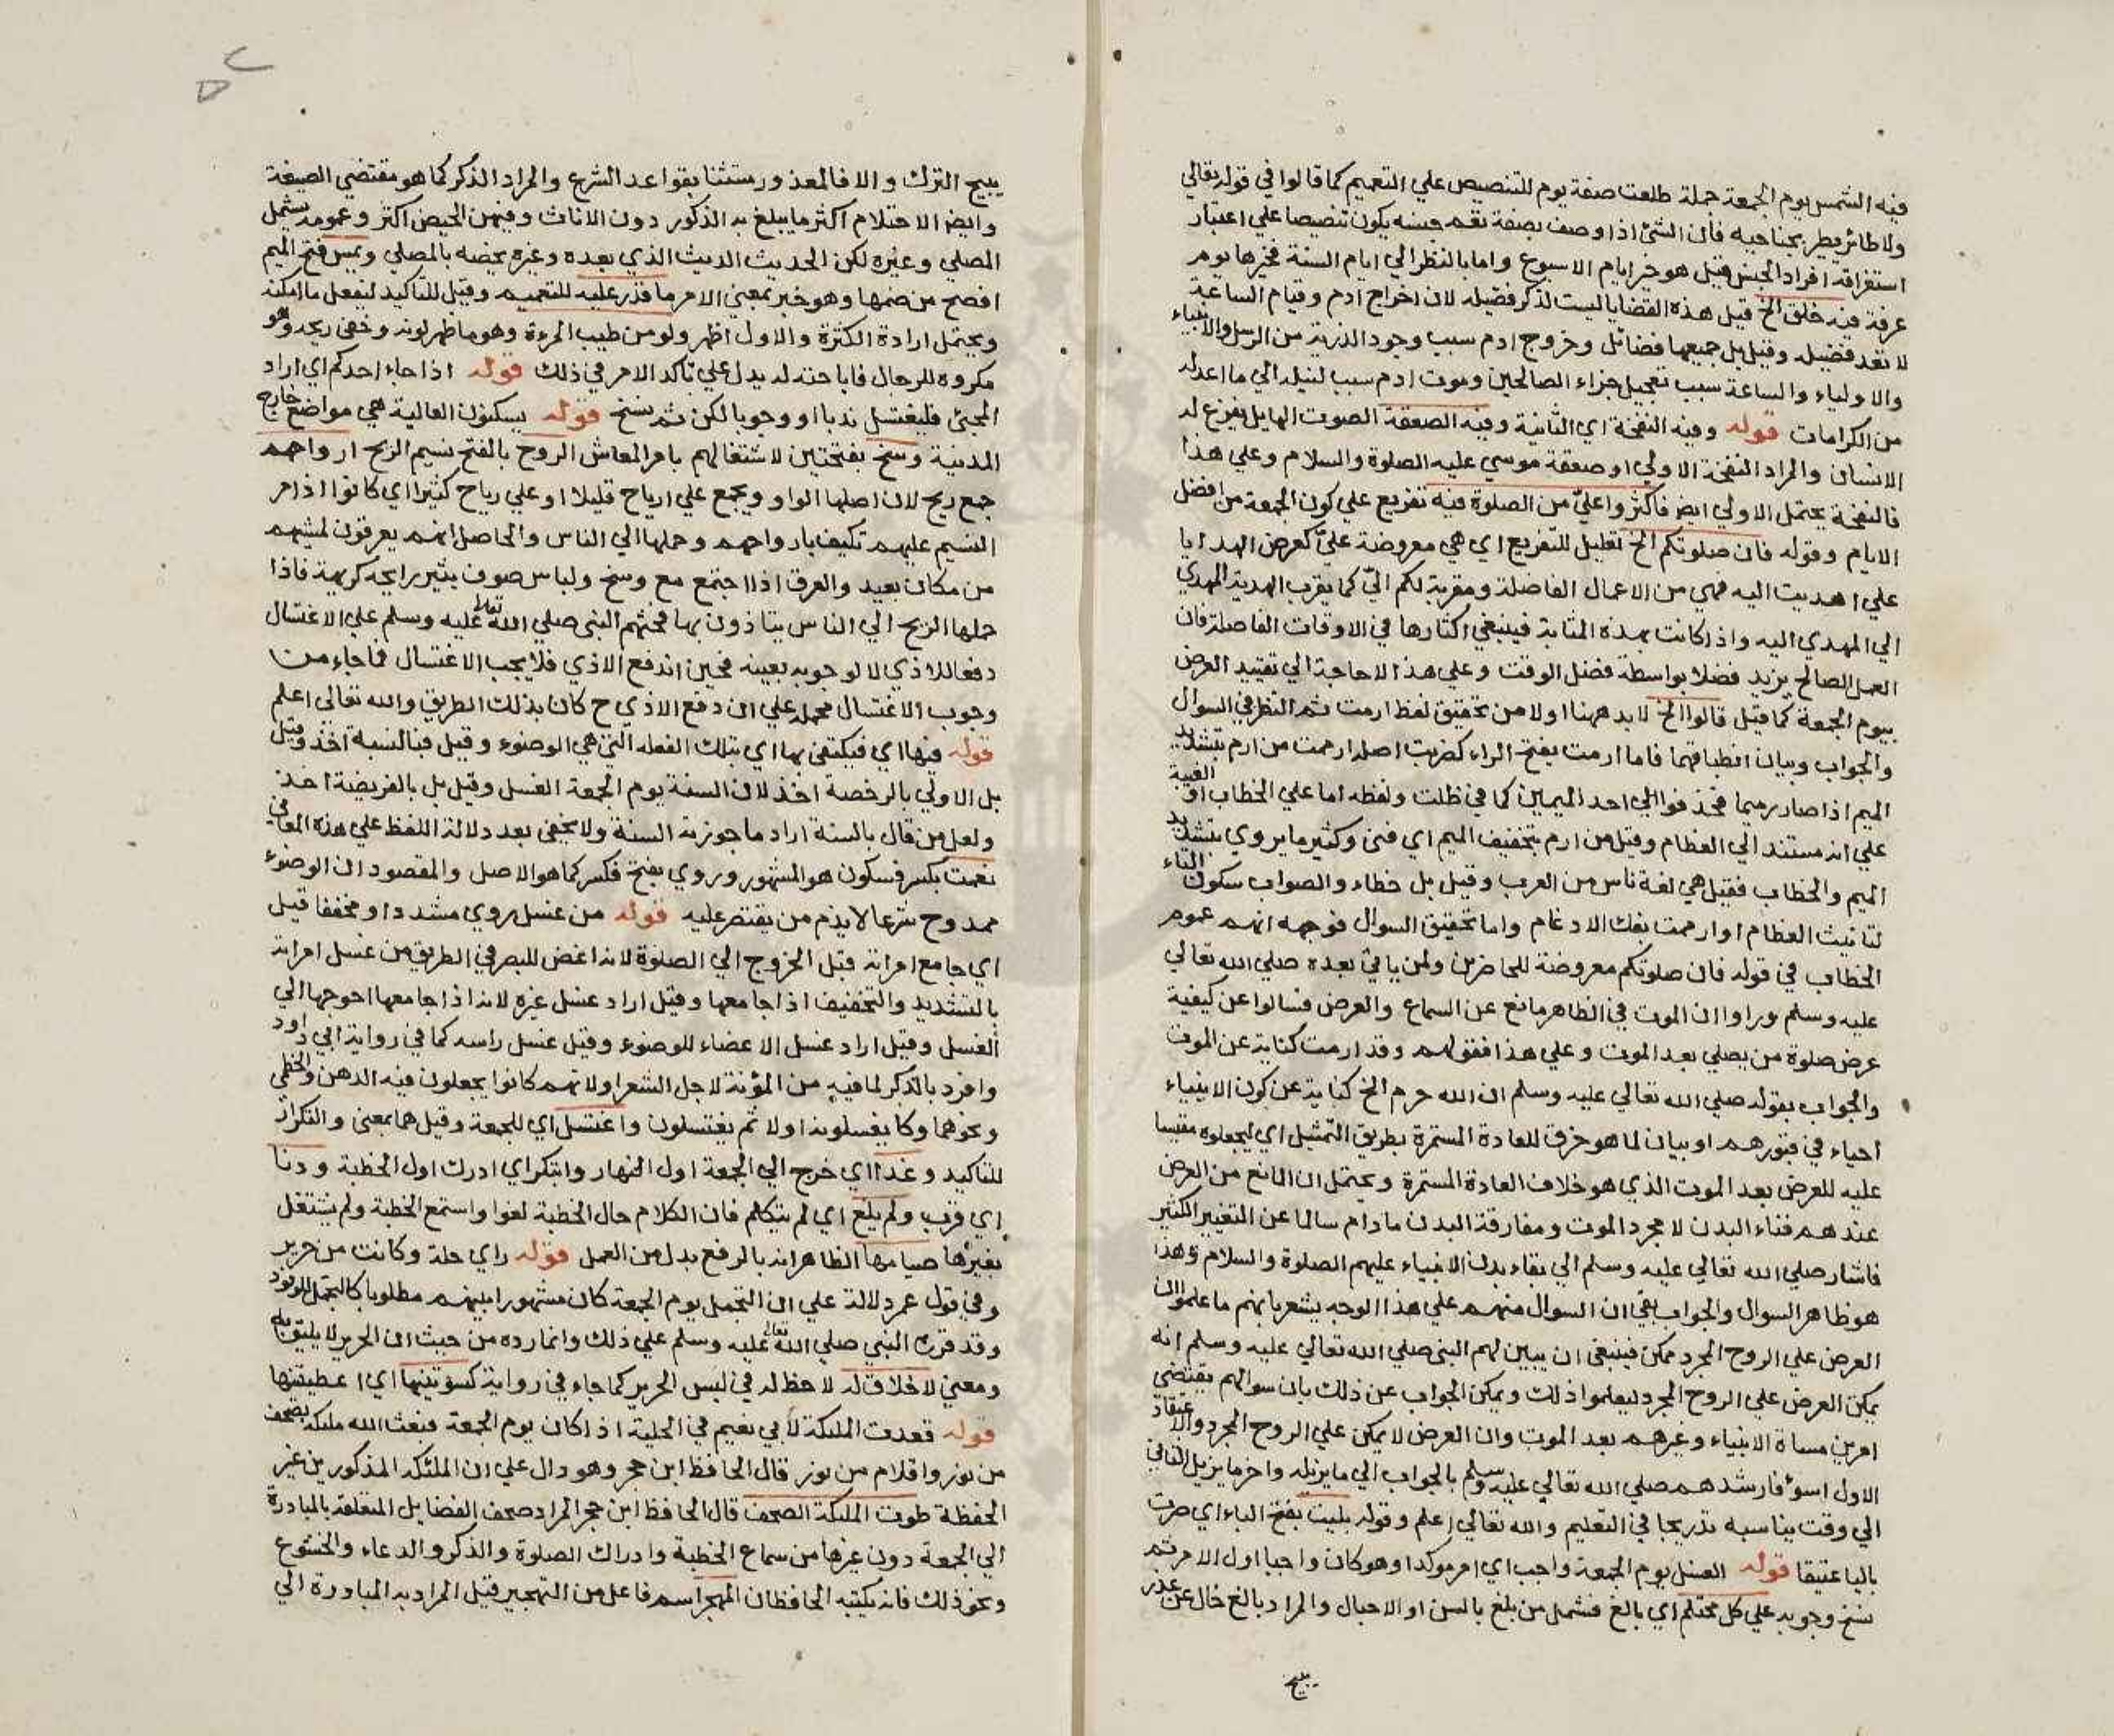 فيه الشمس يوم الجمعة جملة طلعت صفة يوم للتنصيص علي التعميم كما قالوا في قوله تعالي
ولا طائر يطير بجناحيه فان الشئ اذا وصف بصفة تعم جنسه يكون تنصيصا علي اعتبار
استغراقه افراد الجنس قيل هو خير ايام الاسبوع واما بالنظر الي ايام السنة فخيرها يوم
عرفة فيه خلق الخ قيل هذه القضايا ليست لذكر فضيلة لان اخراج ادم وقيام الساعة
لا تعد فضيلة وقيل بل جميعها فضائل وخروج ادم سبب وجود الذرية من الرسل والانبياء
والاولياء والساعة سبب تعجيل جزاء الصالحين وموت ادم سبب لنيله الي ما اعد له
من الكرامات قوله وفيه النفخة اي الثانية وفيه الصعقة الصوت الهايل يفزع له
الانسان والمراد النفخة الاولي او صعقة موسي عليه الصلوة والسلام وعلي هذا
فالنفخة يحتمل الاولي ايض فاكثروا عليّ من الصلوة فيه تفريع علي كون الجمعة من افضل
الايام وقوله فان صلوتكم الخ تعليل للتفريع اي هي معروضة عليّ كعرض الهدايا
علي اهديت اليه فهي من الاعمال الفاضلة ومقربة لكم اليّ كما يقرب الهدية المهدي
الي المهدي اليه واذا كانت بهذه المثابة فينبغي اكثارها في الاوقات الفاضلة فان
العمل الصالح يزيد فضلا بواسطة فضل الوقت وعلي هذا لا حاجة الي تقييد العرض
بيوم الجمعة كما قيل قالوا الخ لا بد ههنا اولا من تحقيق لفظ ارمت ثم النظر في السوال
والجواب وبيان انطباقهما فاما ارمت بفتح الراء كضربت اصله ارممت من ارم بتشديد
الميم اذا صار رميما فحذفوا احد الميمين كما في ظلت ولفظه اما علي الخطاب او الغيبة
علي انه مستند الي العظام وقيل من ارم بتخفيف الميم اي فني وكثير ما يروي بتشديد
الميم والخطاب فقيل هي لغة ناس من العرب وقيل بل خطاء والصواب سكون التاء
لتانيث العظام او ارممت بفك الادغام واما تحقيق السوال فوجهه انهم عموم
الخطاب في قوله فان صلوتكم معروضة للحاضرين ولمن ياتي بعده صلي الله تعالي
عليه وسلم وراوا ان الموت في الظاهر مانع عن السماع والعرض فسالوا عن كيفية
عرض صلوة من يصلي بعد الموت وعلي هذا فقولهم وقد ارمت كناية عن الموت
والجواب بقوله صلي الله تعالي عليه وسلم ان الله حرم الخ كناية عن كون الانبياء
احياء في قبورهم او بيان لما هو خرق للعادة المستمرة بطريق التمثيل اي ليجعلوه مقيسا
عليه للعرض بعد الموت الذي هو خلاف العادة المستمرة ويحتمل ان المانع من العرض
عندهم فناء البدن لا مجرد الموت ومفارقة البدن مادام سالما عن التغيير الكثير
فاشار صلي الله تعالي عليه وسلم الي بقاء بدن الانبياء عليهم الصلوة والسلام وهذا
هو ظاهر السوال والجواب بقي ان السوال منهم علي هذا الوجه يشعر بانهم ما علموا ان
العرض علي الروح المجرد ممكن فينبغي ان يبين لهم النبي صلي الله تعالي عليه وسلم انه
يمكن العرض علي الروح المجرد ليعلموا ذلك ويمكن الجواب عن ذلك بان سوالهم يقتضي
امرين مساة الانبياء وغيرهم بعد الموت وان العرض لا يمكن علي الروح المجرد والاعتقاد
الاول اسوء فارشدهم صلي الله تعالي عليه وسلم بالجواب الي ما يزيله واخر ما يزيل الثاني
الي وقت يناسبه تدريجا في التعليم والله تعالي اعلم وقوله بليت بفتح الباء اي صرت
باليا عتيقا قوله الغسل يوم الجمعة واجب اي امر موكد او هو كان واجبا اول الامر ثم
نسخ وجوبه علي كل محتلم اي بالغ فشمل من بلغ بالسن او الاحبال والمراد بالغ خال عن عذر
يبيح
يبيح الترك والا فالمعذور مستثنا بقواعد الشرع والمراد الذكر كما هو مقتضي الصيغة
وايض الاحتلام اكثر ما يبلغ به الذكور دون الاناث وفيهن الحيض اكثر وعمومه يشمل
المصلي وغيره لكن الحديث الذي بعده وغيره يخصه بالمصلي ويمس فتح الميم
افصح من ضمها وهو خبر بمعني الامر ما قدر عليه للتعميم وقيل للتاكيد ليفعل ما امكنه
ويحتمل ارادة الكثرة والاول اظهر ولو من طيب المرءة وهو ما ظهر لونه وخفي ريحه وهو
مكروه للرجال فاباحته له يدل علي تاكد الامر في ذلك قوله اذا جاء احدكم اي اراد
المجئ فليغتسل ندبا او وجوبا لكن ثم نسخ قوله يسكنون العالية هي مواضع خارج
المدينة وسخ بفتحتين لاشتغالهم بامر المعاش الروح بالفتح نسيم الريح ارواحهم
جمع ريح لان اصلها الواو ويجمع علي ارياح قليلا وعلي رياح كثيرا اي كانوا اذا مر
النسيم عليهم تكيف بارواحهم وحملها الي الناس والحاصل انهم يعرقون لمشيهم
من مكان بعيد والعرق اذا اجتمع مع وسخ ولباس صوف يثير رايحة كريهة فاذا
حملها الريح الي الناس يتاذون بها فحثهم النبي صلي الله تعالي عليه وسلم علي الاغتسال
دفعا للاذي لا لوجوبه بعينه فحين اندفع الاذي فلا يجب الاغتسال فما جاء من
وجوب الاغتسال محمله علي ان دفع الاذي ح كان بذلك الطريق والله تعالي اعلم
قوله فبها اي فيكتفي بها اي بتلك الفعلة التي هي الوضوء وقيل فبالسنة اخذ وقيل
بل الاولي بالرخصة اخذ لان السنة يوم الجمعة الغسل وقيل بل بالفريضة اخذ
ولعل من قال بالسنة اراد ما جوزته السنة ولا يخفي بعد دلالة اللفظ علي هذه المعاني
نعمت بكسر فسكون هو المشهور وروي بفتح فكسر كما هو الاصل والمقصود ان الوضوء
ممدوح شرعا لا يذم من يقتصر عليه قوله من غسل يروي مشددا ومخففا قيل
اي جامع امراته قبل الخروج الي الصلوة لانه اغض للبصر في الطريق من غسل امراته
بالتشديد والتخفيف اذا جامعها وقيل اراد غسل غيره لانه اذا جامعها احوجها الي
الغسل وقيل اراد غسل الاعضاء للوضوء وقيل غسل راسه كما في رواية ابي داود
وافرد بالذكر لما فيه من المؤنة لاجل الشعر او لانهم كانوا يجعلون فيه الدهن والخطمي
ونحوهما وكانوا يغسلونه اولا ثم يغتسلون واغتسل اي للجمعة وقيل هما بمعني والتكرار
للتاكيد وغدا اي خرج الي الجمعة اول النهار وابتكر اي ادرك اول الخطبة ودنا
اي قرب ولم يلغ اي لم يتكلم فان الكلام حال الخطبة لغو او استمع الخطبة ولم يشتغل
بغيرها صيامها الظاهر انه بالرفع بدل من العمل قوله راي حلة وكانت من حرير
وفي قول عمر دلالة علي ان التجمل يوم الجمعة كان مشهورا بينهم مطلوبا كالتجمل للوفود
وقد قرره النبي صلي الله تعالي عليه وسلم علي ذلك وانما رده من حيث ان الحرير لا يليق به
ومعني لا خلاق له لا حظ له في لبس الحرير كما جاء في رواية كسوتنيها اي اعطيتنيها
قوله قعدت الملئكة لابي نعيم في الحلية اذا كان يوم الجمعة فبعث الله ملئكة بصحف
من نور واقلام من نور قال الحافظ ابن حجر وهو دال علي ان الملئكة المذكورين غير
الحفظة طوت الملئكة الصحف قال الحافظ ابن حجر المراد صحف الفضايل المتعلقة بالمبادرة
الي الجمعة دون غيرها من سماع الخطبة وادراك الصلوة والذكر والدعاء والخشوع
ونحو ذلك فانه يكتبه الحافظان المهجر اسم فاعل من التهجير قيل المراد به المبادرة الي